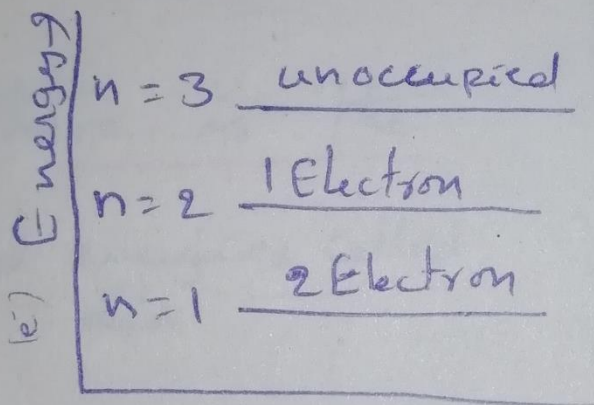 Energy →
n = 3 unoccupied
n = 2 1 Electron
n = 1 2 Electron
(e)